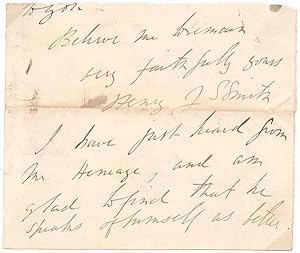 to you.
Believe me to remain
very faithfully yours
Henry J S Smith
I have just heard from
Mr Heneage, and am
glad to find that he
speaks of himself as better